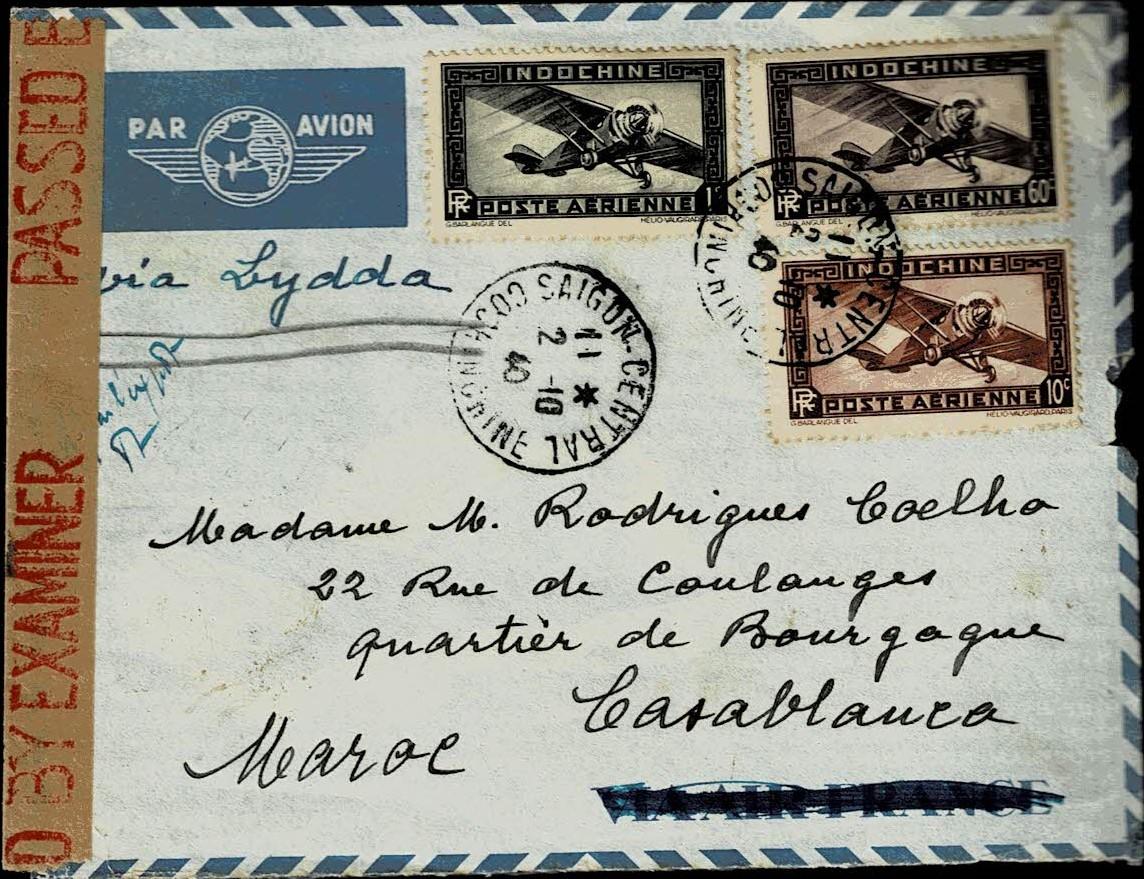 PASSED BY EXAMINER
PAR AVION
via Lydda
INDOCHINE
RF POSTE AÉRIENNE
G.BARLANGUE DEL HÉLIO-VAUGIRARD.PARIS
INDOCHINE
60c
RF POSTE AÉRIENNE
G.BARLANGUE DEL HÉLIO-VAUGIRARD.PARIS
INDOCHINE
10c
RF POSTE AÉRIENNE
G.BARLANGUE DEL HÉLIO-VAUGIRARD.PARIS
SAIGON-CENTRAL
COCHINCHINE
11
2 -10
40
SAIGON-CENTRAL
COCHINCHINE
Madame M. Rodrigues Coelho
22 Rue de Coulanges
quartièr de Bourgogne
Casablanca
Maroc
VIA AIR FRANCE